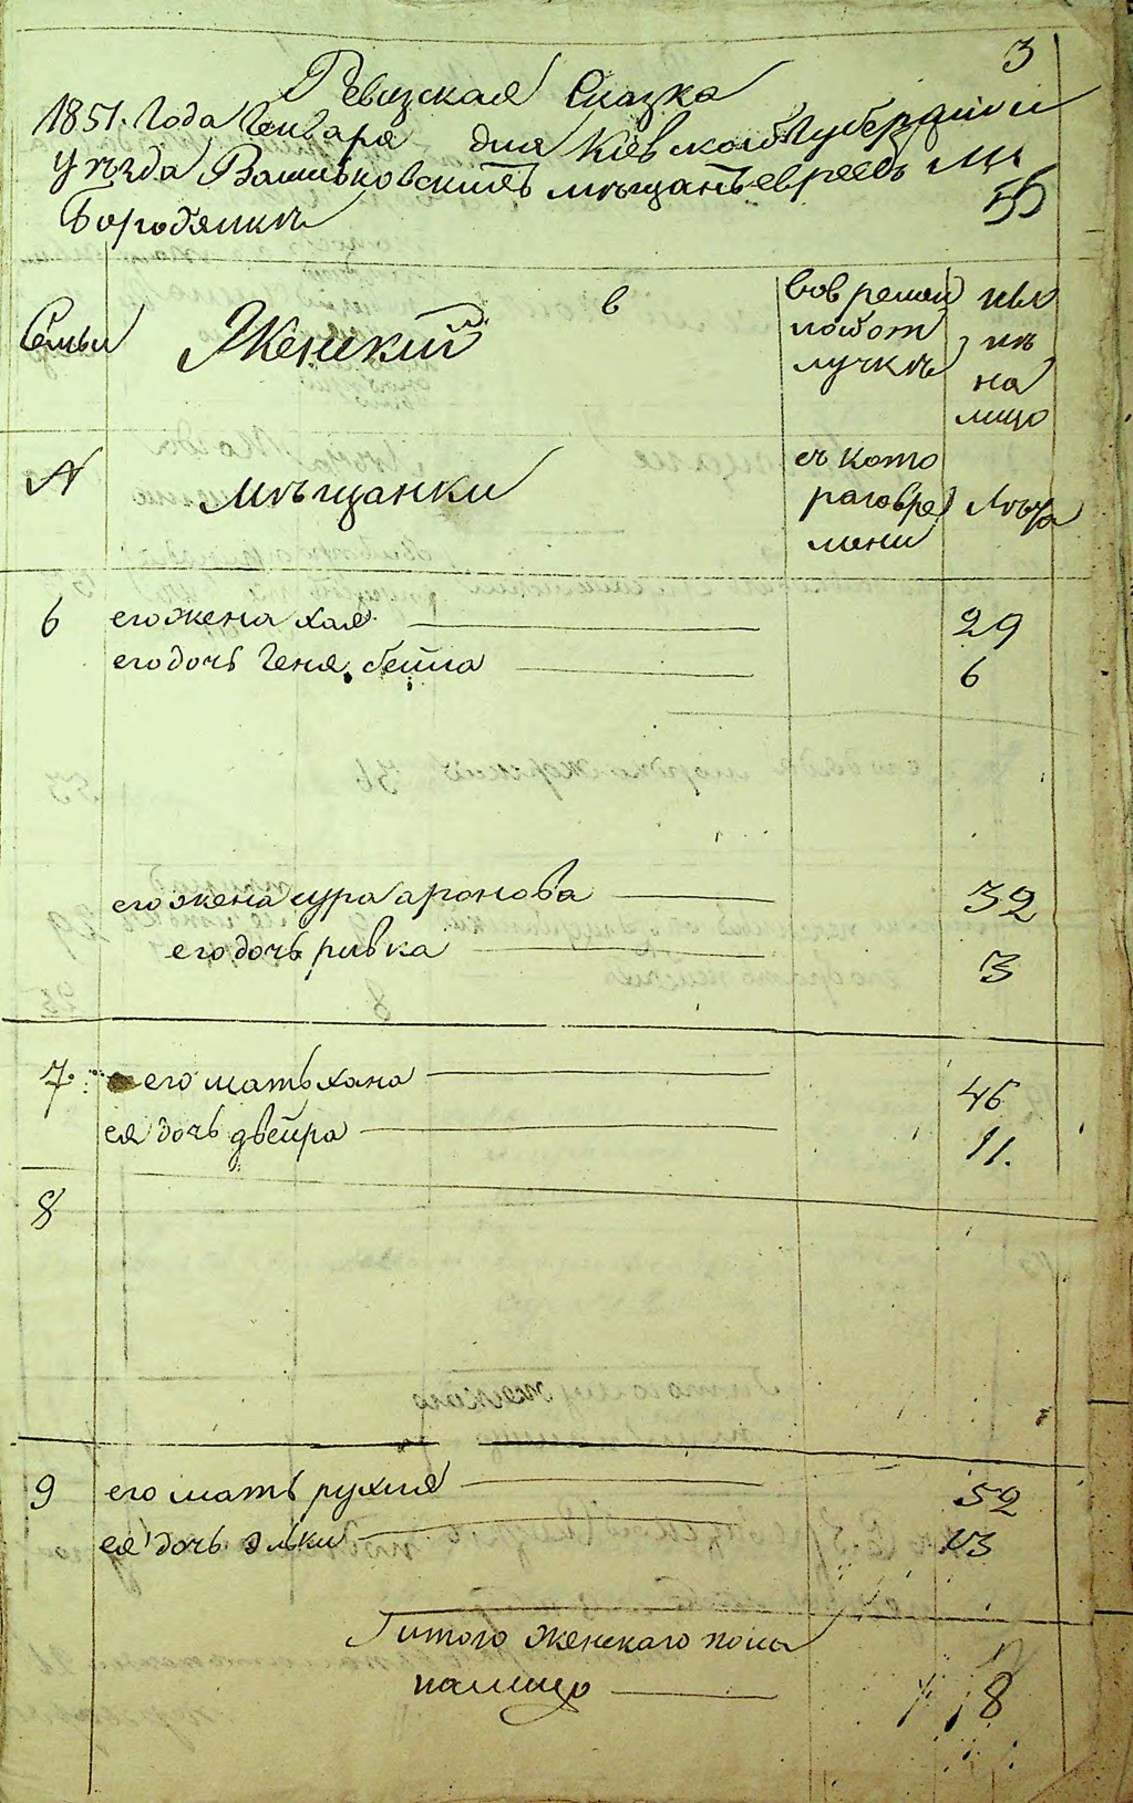 3
Ревизская Сказка
1851. Года Генваря дня Киевской Губернии
уезда Васильковскихъ мѣщанъ евреевъ м.
Бородянкѣ
55
Семьи Женский в
вовремен
ной от
лучкѣ
нынѣ
на
лицо
№ мѣщанки
съ кото
раго вре
мени
Лѣта
6 его жена хая 29
его дочь Геня бейла 6
его жена сура аронова 32
его дочь ривка 3
7. его мать хана 46
ея дочь двейра 11.
8
9 его мать рухля 52
ея дочь эльки 13
итого женскаго пола
налицо 8